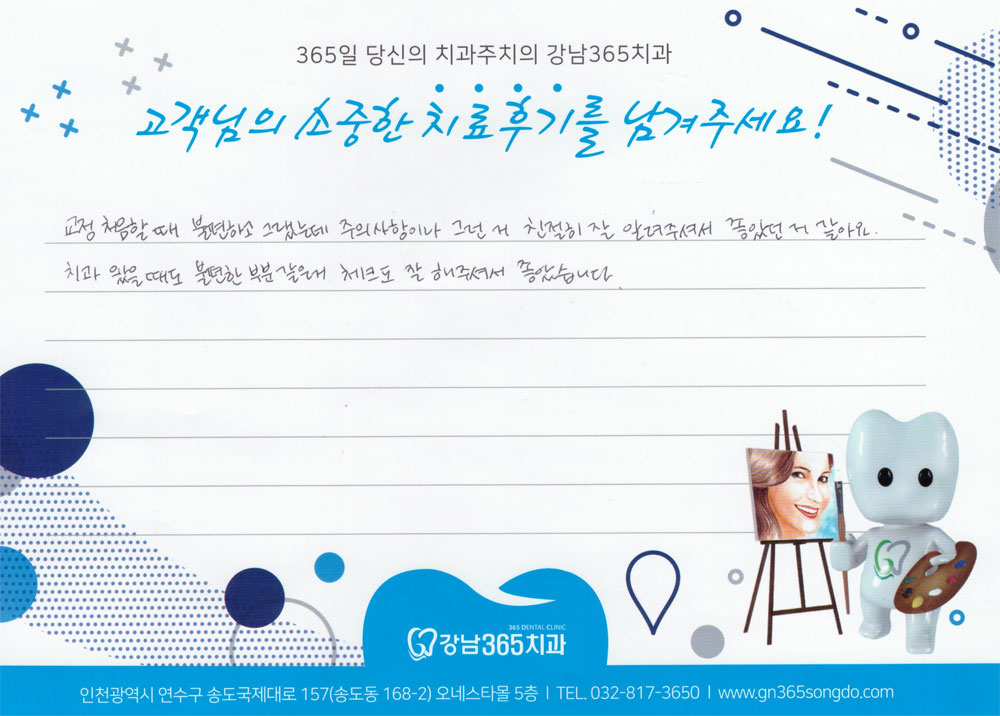 365일 당신의 치과주치의 강남365치과
고객님의 소중한 치료후기를 남겨주세요!
교정 처음할 때 불편하고 그랬는데 주의사항이나 그런 거 친절히 잘 알려주셔서 좋았던 거 같아요.
치과 왔을 때도 불편한 부분 같은거 체크도 잘 해주셔서 좋았습니다.
365 DENTAL CLINIC
강남365치과
인천광역시 연수구 송도국제대로 157(송도동 168-2) 오네스타몰 5층 | TEL. 032-817-3650 | www.gn365songdo.com